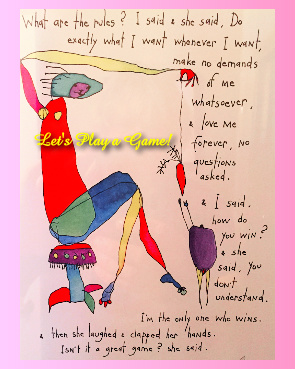 What are the rules? I said & she said, Do
exactly what I want whenever I want,
make no demands
of me
whatsoever,
& love me
forever, no
questions
asked.
Let's Play a Game!
& I said,
how do
you win?
& she
said, you
don't
understand.
I'm the only one who wins.
& then she laughed & clapped her hands.
Isn't it a great game? she said.